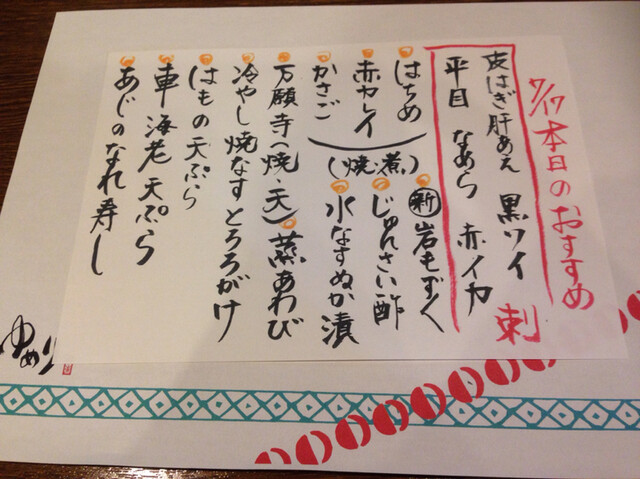 7/17 本日のおすすめ
皮はぎ肝あえ 黒ソイ
平目 なめら 赤イカ
刺
はちめ
赤カレイ
かさご
(焼・煮)
新 岩もずく
じゅんさい酢
水なすぬか漬
万願寺(焼、天)
蒸あわび
冷やし焼なすとろろがけ
はもの天ぷら
車海老天ぷら
あじのなれ寿し
ゆめり